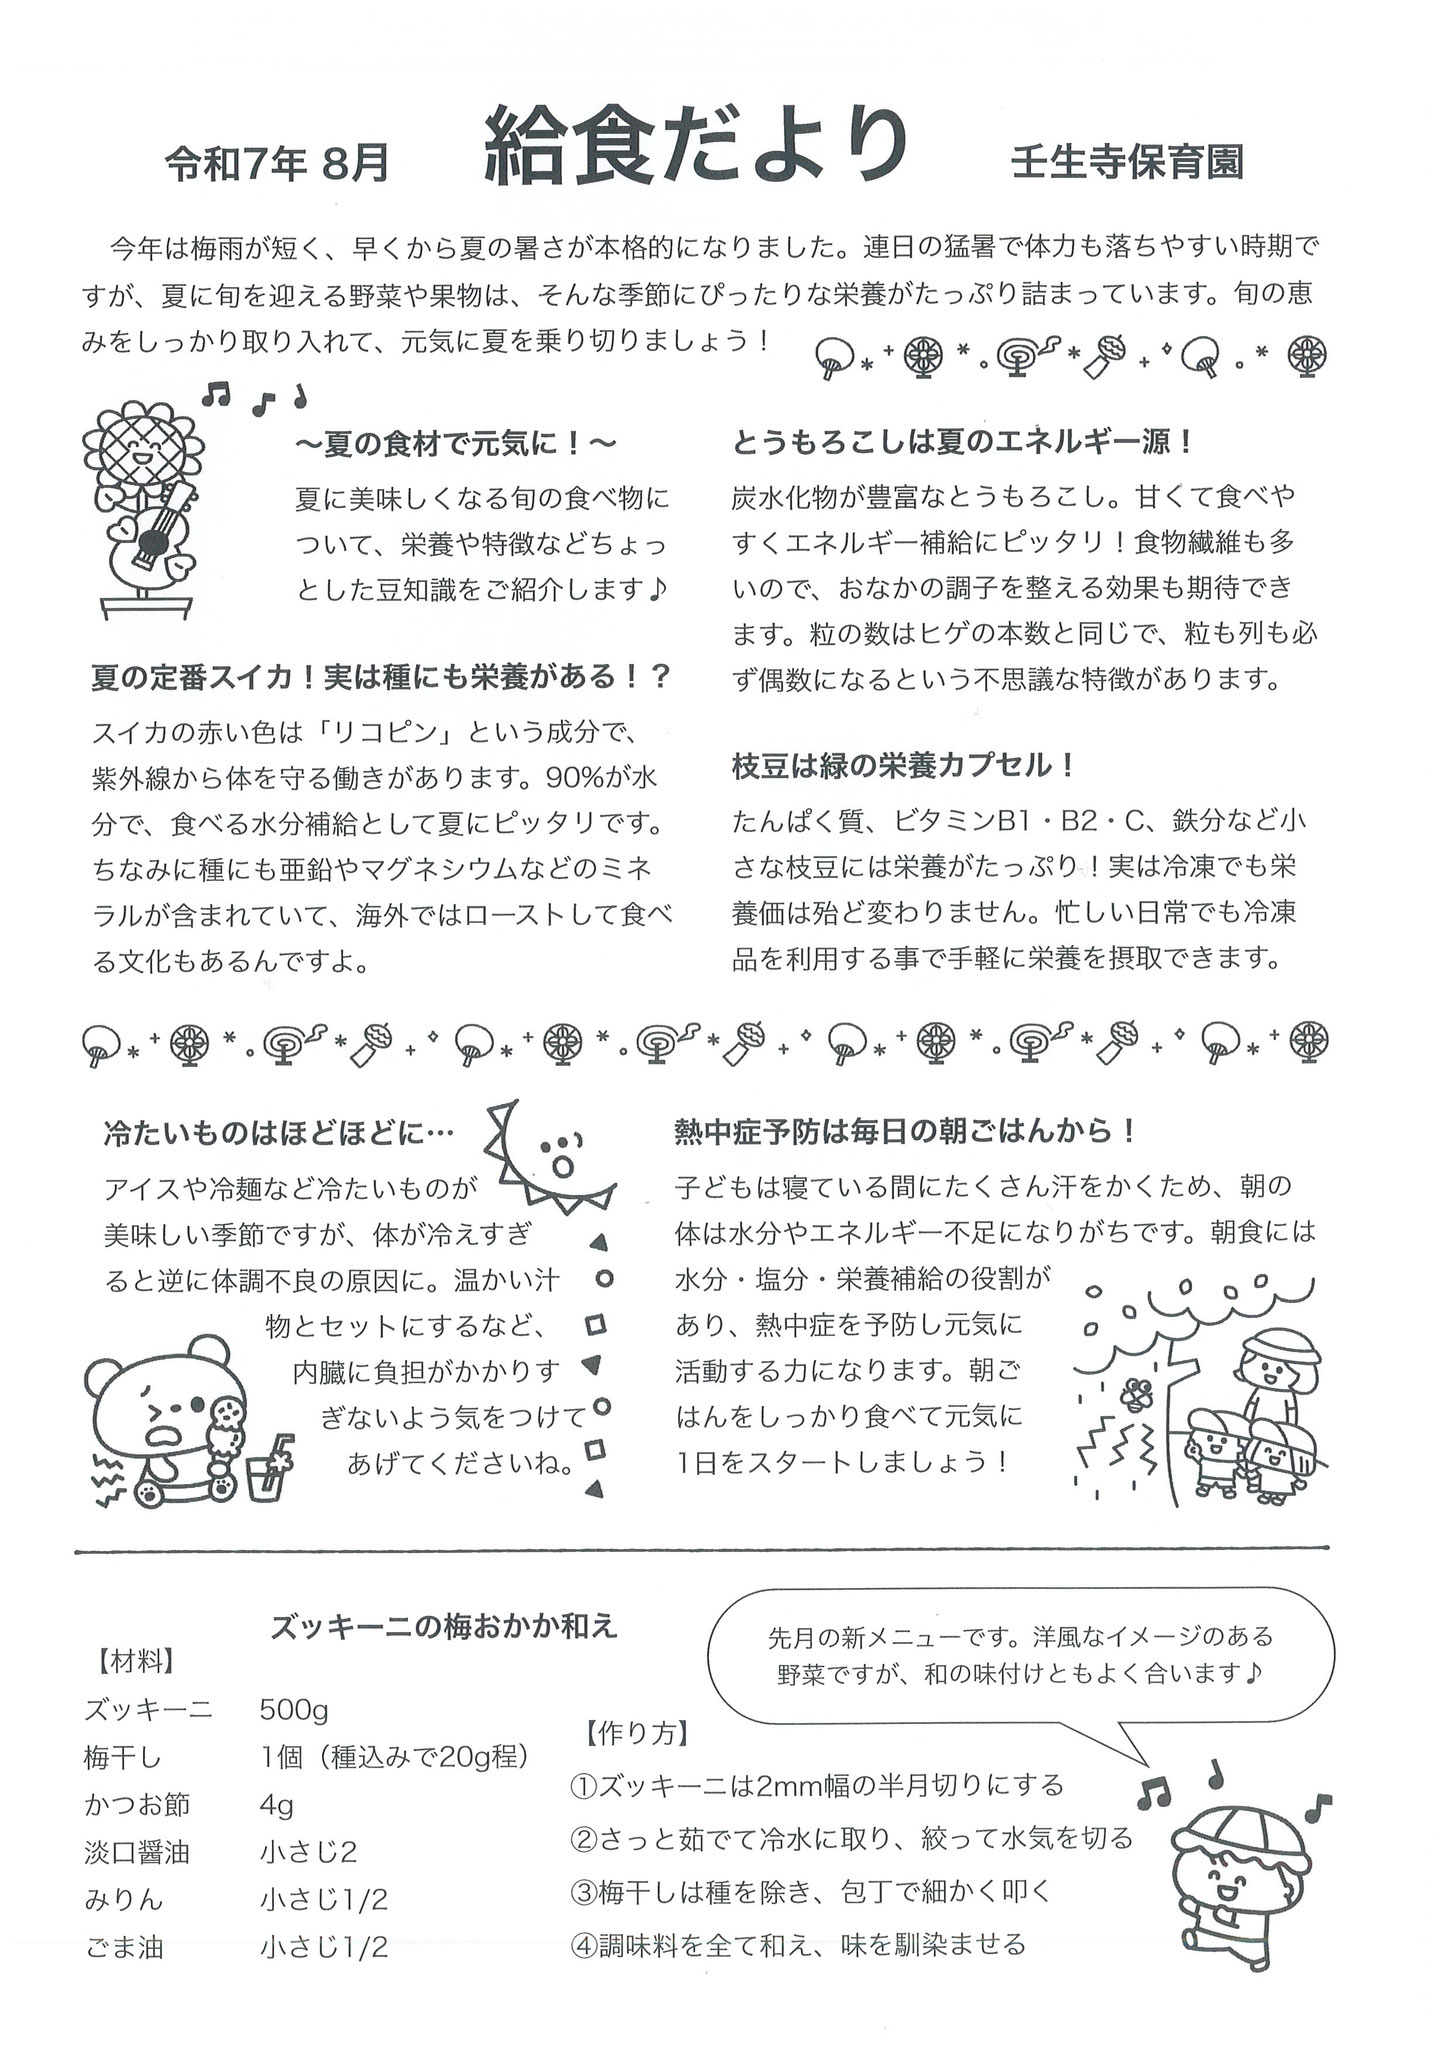 令和7年 8月
給食だより
壬生寺保育園
今年は梅雨が短く、早くから夏の暑さが本格的になりました。連日の猛暑で体力も落ちやすい時期で
すが、夏に旬を迎える野菜や果物は、そんな季節にぴったりな栄養がたっぷり詰まっています。旬の恵
みをしっかり取り入れて、元気に夏を乗り切りましょう！
〜夏の食材で元気に！〜
夏に美味しくなる旬の食べ物に
ついて、栄養や特徴などちょっ
とした豆知識をご紹介します♪
夏の定番スイカ！実は種にも栄養がある！？
スイカの赤い色は「リコピン」という成分で、
紫外線から体を守る働きがあります。90%が水
分で、食べる水分補給として夏にピッタリです。
ちなみに種にも亜鉛やマグネシウムなどのミネ
ラルが含まれていて、海外ではローストして食べ
る文化もあるんですよ。
とうもろこしは夏のエネルギー源！
炭水化物が豊富なとうもろこし。甘くて食べや
すくエネルギー補給にピッタリ！食物繊維も多
いので、おなかの調子を整える効果も期待でき
ます。粒の数はヒゲの本数と同じで、粒も列も必
ず偶数になるという不思議な特徴があります。
枝豆は緑の栄養カプセル！
たんぱく質、ビタミンB1・B2・C、鉄分など小
さな枝豆には栄養がたっぷり！実は冷凍でも栄
養価は殆ど変わりません。忙しい日常でも冷凍
品を利用する事で手軽に栄養を摂取できます。
冷たいものはほどほどに…
アイスや冷麺など冷たいものが
美味しい季節ですが、体が冷えすぎ
ると逆に体調不良の原因に。温かい汁
物とセットにするなど、
内臓に負担がかかりす
ぎないよう気をつけて
あげてくださいね。
熱中症予防は毎日の朝ごはんから！
子どもは寝ている間にたくさん汗をかくため、朝の
体は水分やエネルギー不足になりがちです。朝食には
水分・塩分・栄養補給の役割が
あり、熱中症を予防し元気に
活動する力になります。朝ご
はんをしっかり食べて元気に
1日をスタートしましょう！
ズッキーニの梅おかか和え
【材料】
ズッキーニ 500g
梅干し 1個（種込みで20g程）
かつお節 4g
淡口醤油 小さじ2
みりん 小さじ1/2
ごま油 小さじ1/2
先月の新メニューです。洋風なイメージのある
野菜ですが、和の味付けともよく合います♪
【作り方】
①ズッキーニは2mm幅の半月切りにする
②さっと茹でて冷水に取り、絞って水気を切る
③梅干しは種を除き、包丁で細かく叩く
④調味料を全て和え、味を馴染ませる